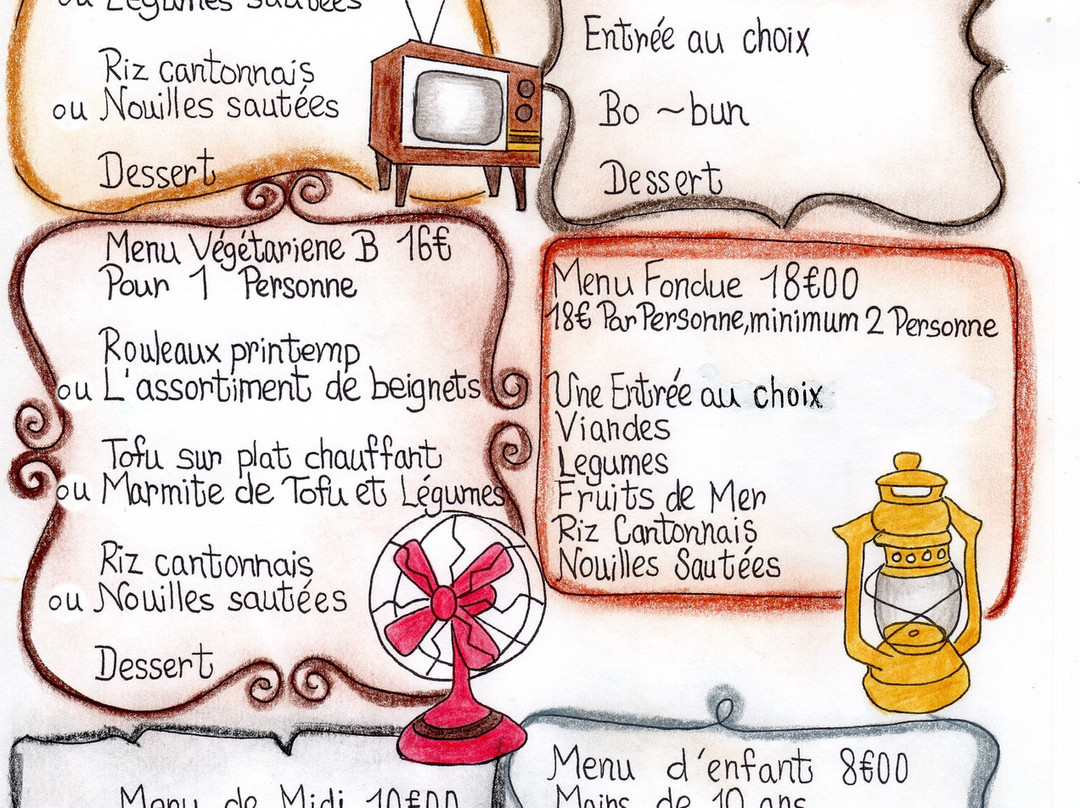 ou Légumes sautées
Riz cantonnais
ou Nouilles sautées
Dessert
Entrée au choix
Bo ~ bun
Dessert
Menu Végétariene B 16€
Pour 1 Personne
Rouleaux printemp
ou L'assortiment de beignets
Tofu sur plat chauffant
ou Marmite de Tofu et Légumes
Riz cantonnais
ou Nouilles sautées
Dessert
Menu Fondue 18€00
18€ Par Personne, minimum 2 Personne
Une Entrée au choix
Viandes
Legumes
Fruits de Mer
Riz Cantonnais
Nouilles Sautées
Menu de Midi 10€00
Menu d'enfant 8€00
Moins de 10 ans